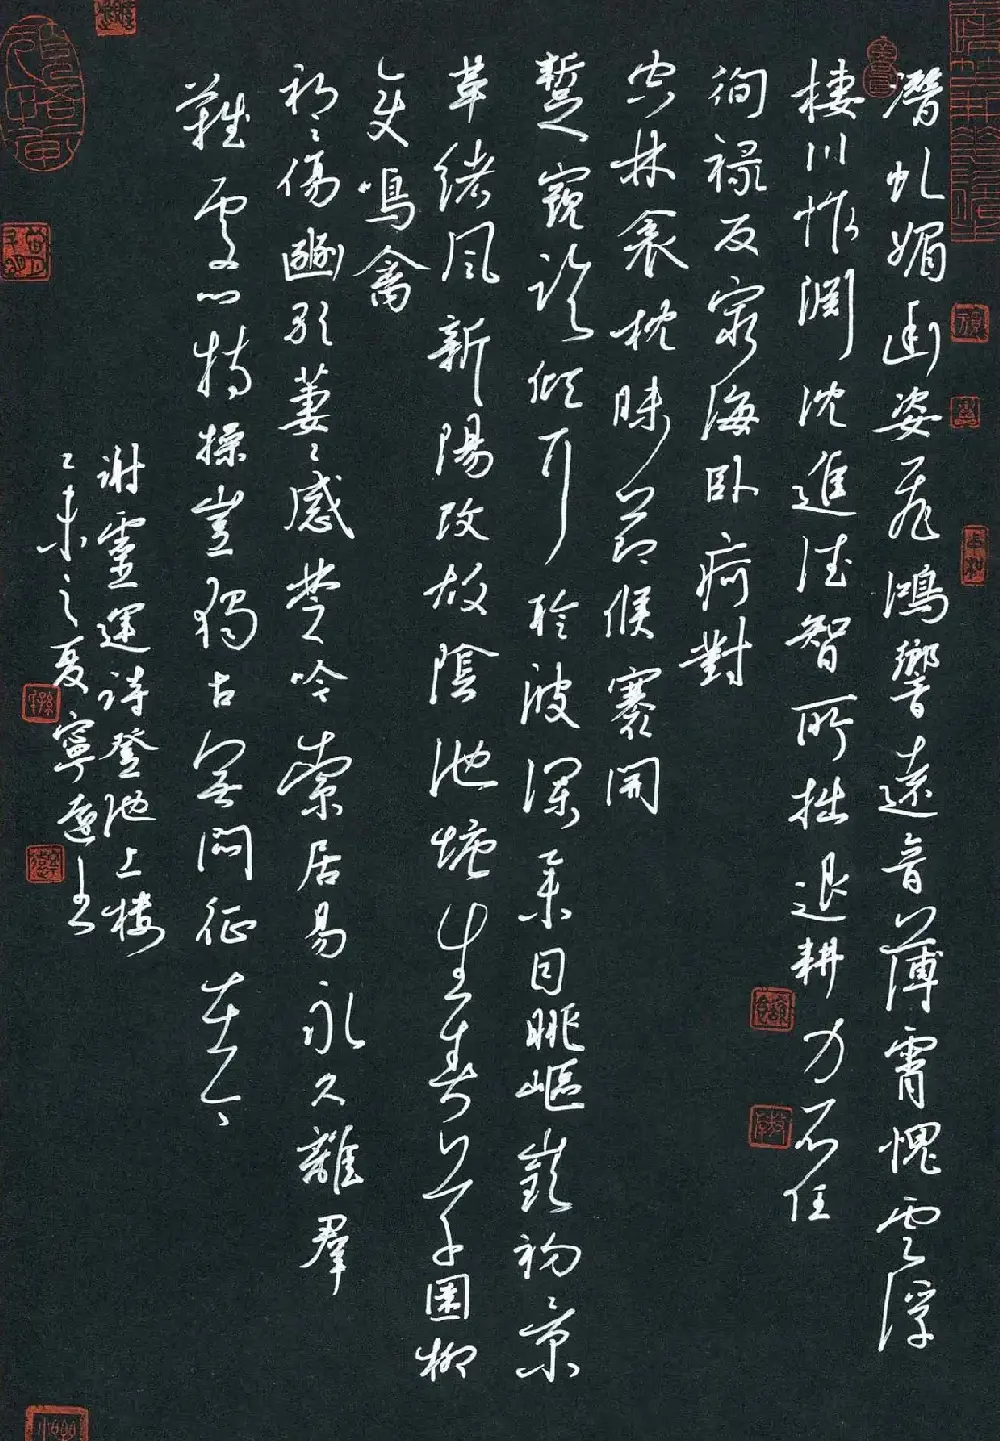 潛虬媚幽姿飛鴻響遠音薄霄愧雲浮
棲川怍淵沈進德智所拙退耕力不任
徇祿反窮海臥痾對
空林衾枕昧節候褰開
暫窺臨傾耳聆波瀾舉目眺嶇嶔初景
革緒風新陽改故陰池塘生春草園柳
變鳴禽
祁々傷豳歌萋々感楚吟索居易永久離羣
難處心持操豈獨古無悶征在今
謝靈運詩登池上樓
乙未之夏寧遠